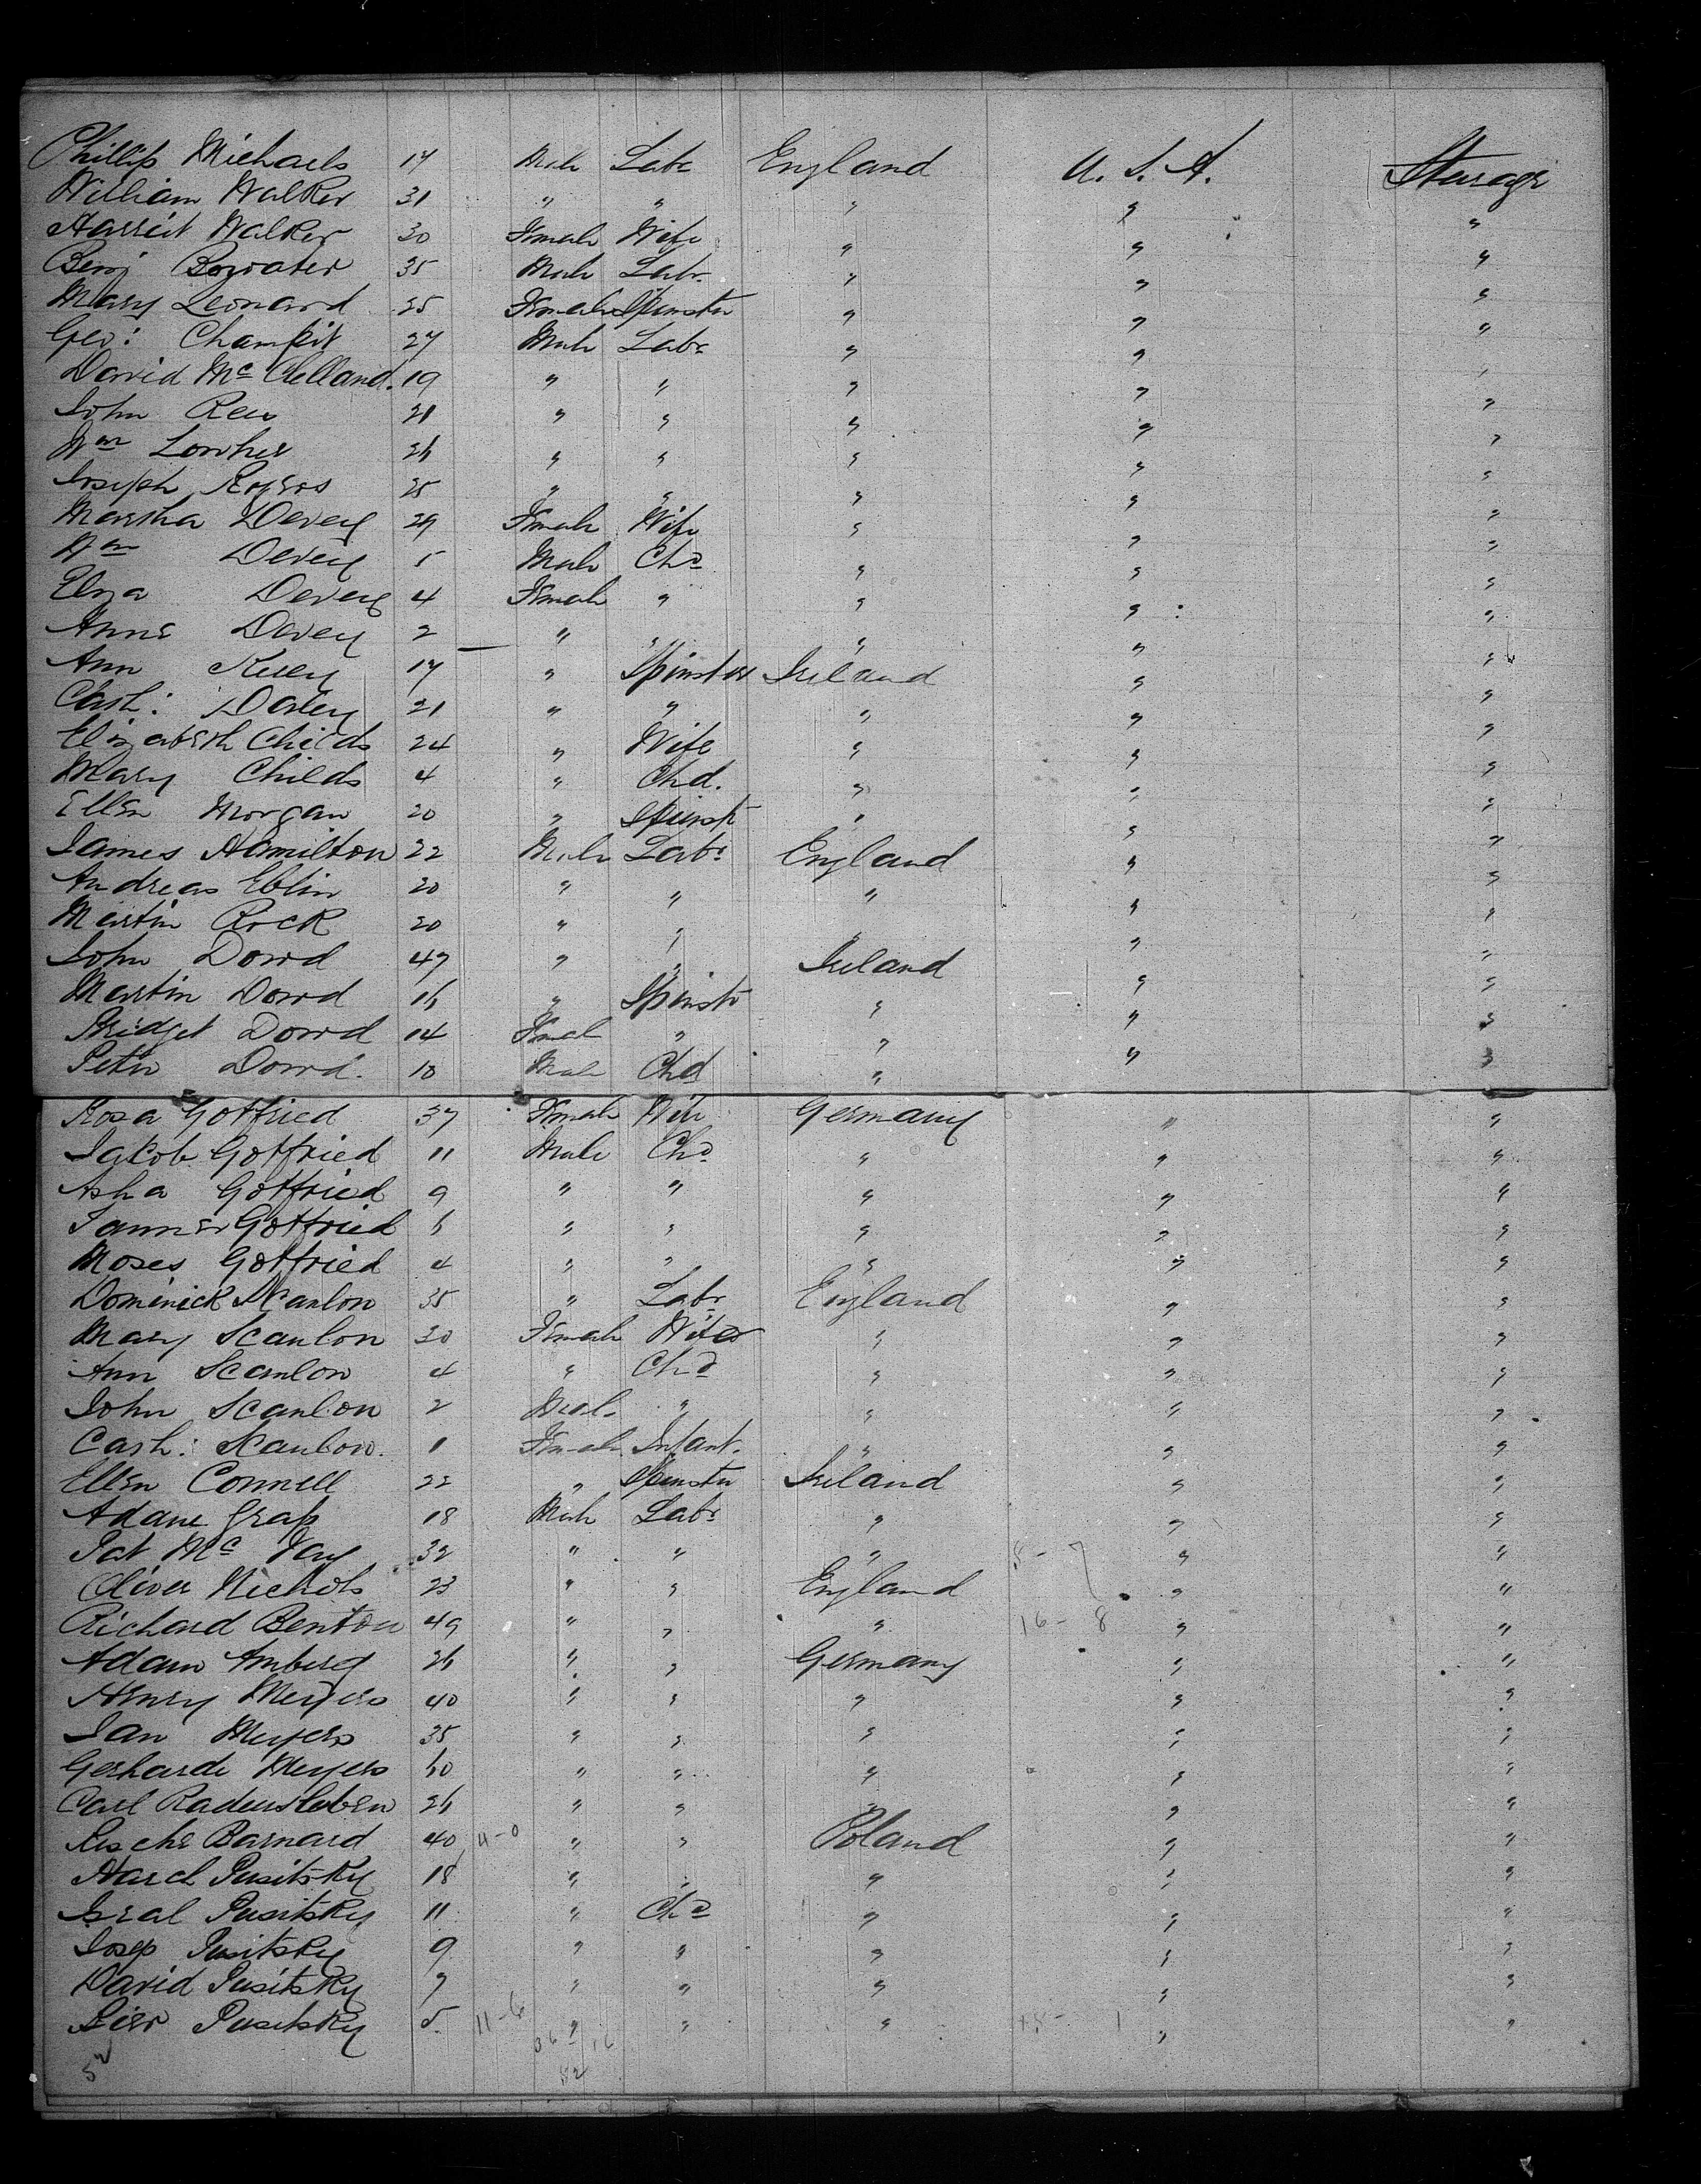 Phillip Michaels 17 Male Labr England U. S. A. Steerage
William Walker 31 " " " " "
Harriet Walker 30 Female Wife " " "
Benj Bowater 35 Male Labr " " "
Mary Leonard 25 Female Spinster " " "
Geo: Champit 27 Male Labr " " "
David Mc Clelland. 19 " " " " "
John Rees 21 " " " " "
Wm Lowher 26 " " " " "
Joseph Rogers 25 " " " " "
Martha Devey 29 Female Wife " " "
Wm Devey 5 Male Chd " " "
Eliza Devey 4 Female " " " "
Anne Devey 2 " " " " "
Ann Kelly 17 " Spinster Ireland " "
Cath: Daley 21 " " " " "
Elizabeth Childs 24 " Wife " " "
Mary Childs 4 " Chd. " " "
Ellen Morgan 20 " Spinst " " "
James Hamilton 22 Male Labr England " "
Andreas Eblin 20 " " " " "
Martin Rock 20 " " " " "
John Dowd 47 " " Ireland " "
Martin Dowd 16 " Spinstr " " "
Bridget Dowd 14 Femal " " " "
Peter Dowd. 10 Male Chd " " "
Rosa Gottfried 37 Female Wife Germany " "
Jakob Gottfried 11 Male Chd " " "
Asha Gottfried 9 " " " " "
Gottfried 6 " " " " "
Moses Gottfried 4 " " " " "
Dominick Scanlon 35 " Labr England " "
Mary Scanlon 30 Female Wife " " "
Ann Scanlon 4 " Chd " " "
John Scanlon 2 Male " " " "
Cath: Scanlon. 1 Female Infant. " " "
Ellen Connell 22 " Spinster Ireland " "
Adam Graf 18 Male Labr " " "
Pat Mc Vay 32 " " " " "
Oliver Nichols 23 " " England " "
Richard Benton 49 " " " 16 - 8 " "
Adam Amberg 26 " " Germany " "
Henry Meyers 40 " " " " "
Jan Meyers 35 " " " " "
Gerharde Meyers 60 " " " " "
Carl Radensleben 26 " " " " "
Barnard 40 11-0 " " Poland " "
Pusitsky 18 " " " " "
Isral Pusitsky 11 " Chd " " "
Josep Pusitsky 9 " " " " "
David Pusitsky 7 " " " " "
Pusitsky 5 11-6 " " " " "
52